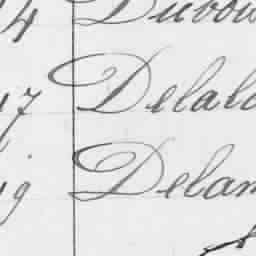 4 Dubou
17 Delala
19 Delam